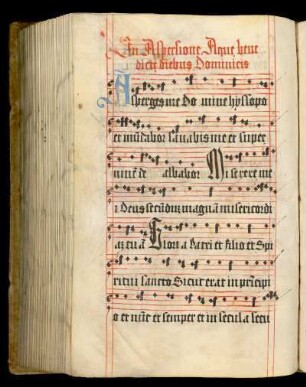 In Aspersione Aque bene
dicte diebus Dominicis
Asperges me Do mine hyssopo
et mūdabor lavabis me et super
nivē de albabor Miserere me
i Deus secūdū magnā misericordi
aꝫ tuā Gloria Patri et filio et Spi
ritui sancto Sicut erat in prīcipi
o et nūc et semper et in secula secu